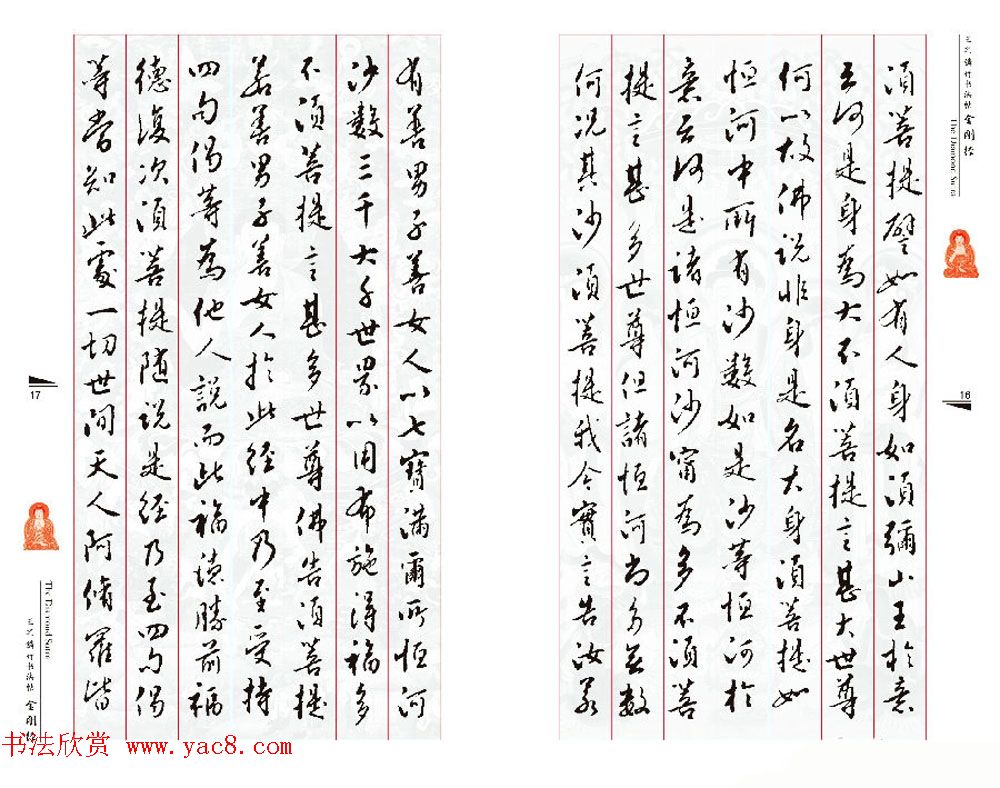 金刚经
The Diamond Sutra
16
須菩提譬如有人身如須彌山王於意
云何是身為大不須菩提言甚大世尊
何以故佛説非身是名大身須菩提如
恒河中所有沙數如是沙等恒河於
意云何是諸恒河沙甯為多不須菩
提言甚多世尊但諸恒河尚多無數
何况其沙須菩提我今實言告汝若
有善男子善女人以七寶滿爾所恒河
沙數三千大千世界以用布施得福多
不須菩提言甚多世尊佛告須菩提
若善男子善女人於此經中乃至受持
四句偈等為他人說而此福德勝前福
德復次須菩提随説是經乃至四句偈
等當知此處一切世間天人阿脩羅皆
17
The Diamond Sutra
金刚经
书法欣赏 www.yac8.com